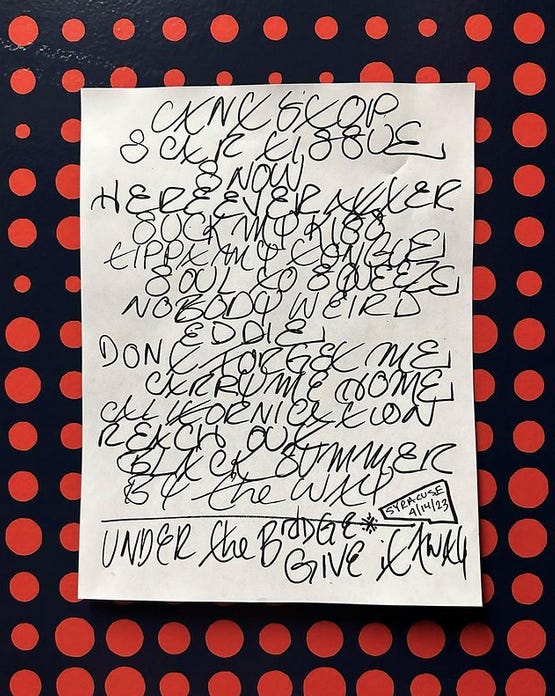 CAN'T STOP
SCAR TISSUE
SNOW
HERE EVER AFTER
SUCK MY KISS
TIPPA MY TONGUE
SOUL TO SQUEEZE
NOBODY WEIRD
EDDIE
DON'T FORGET ME
CARRY ME HOME
CALIFORNICATION
REACH OUT
BLACK SUMMER
BY the WAY
SYRACUSE
4/14/23
UNDER the BRIDGE*
GIVE it AWAY